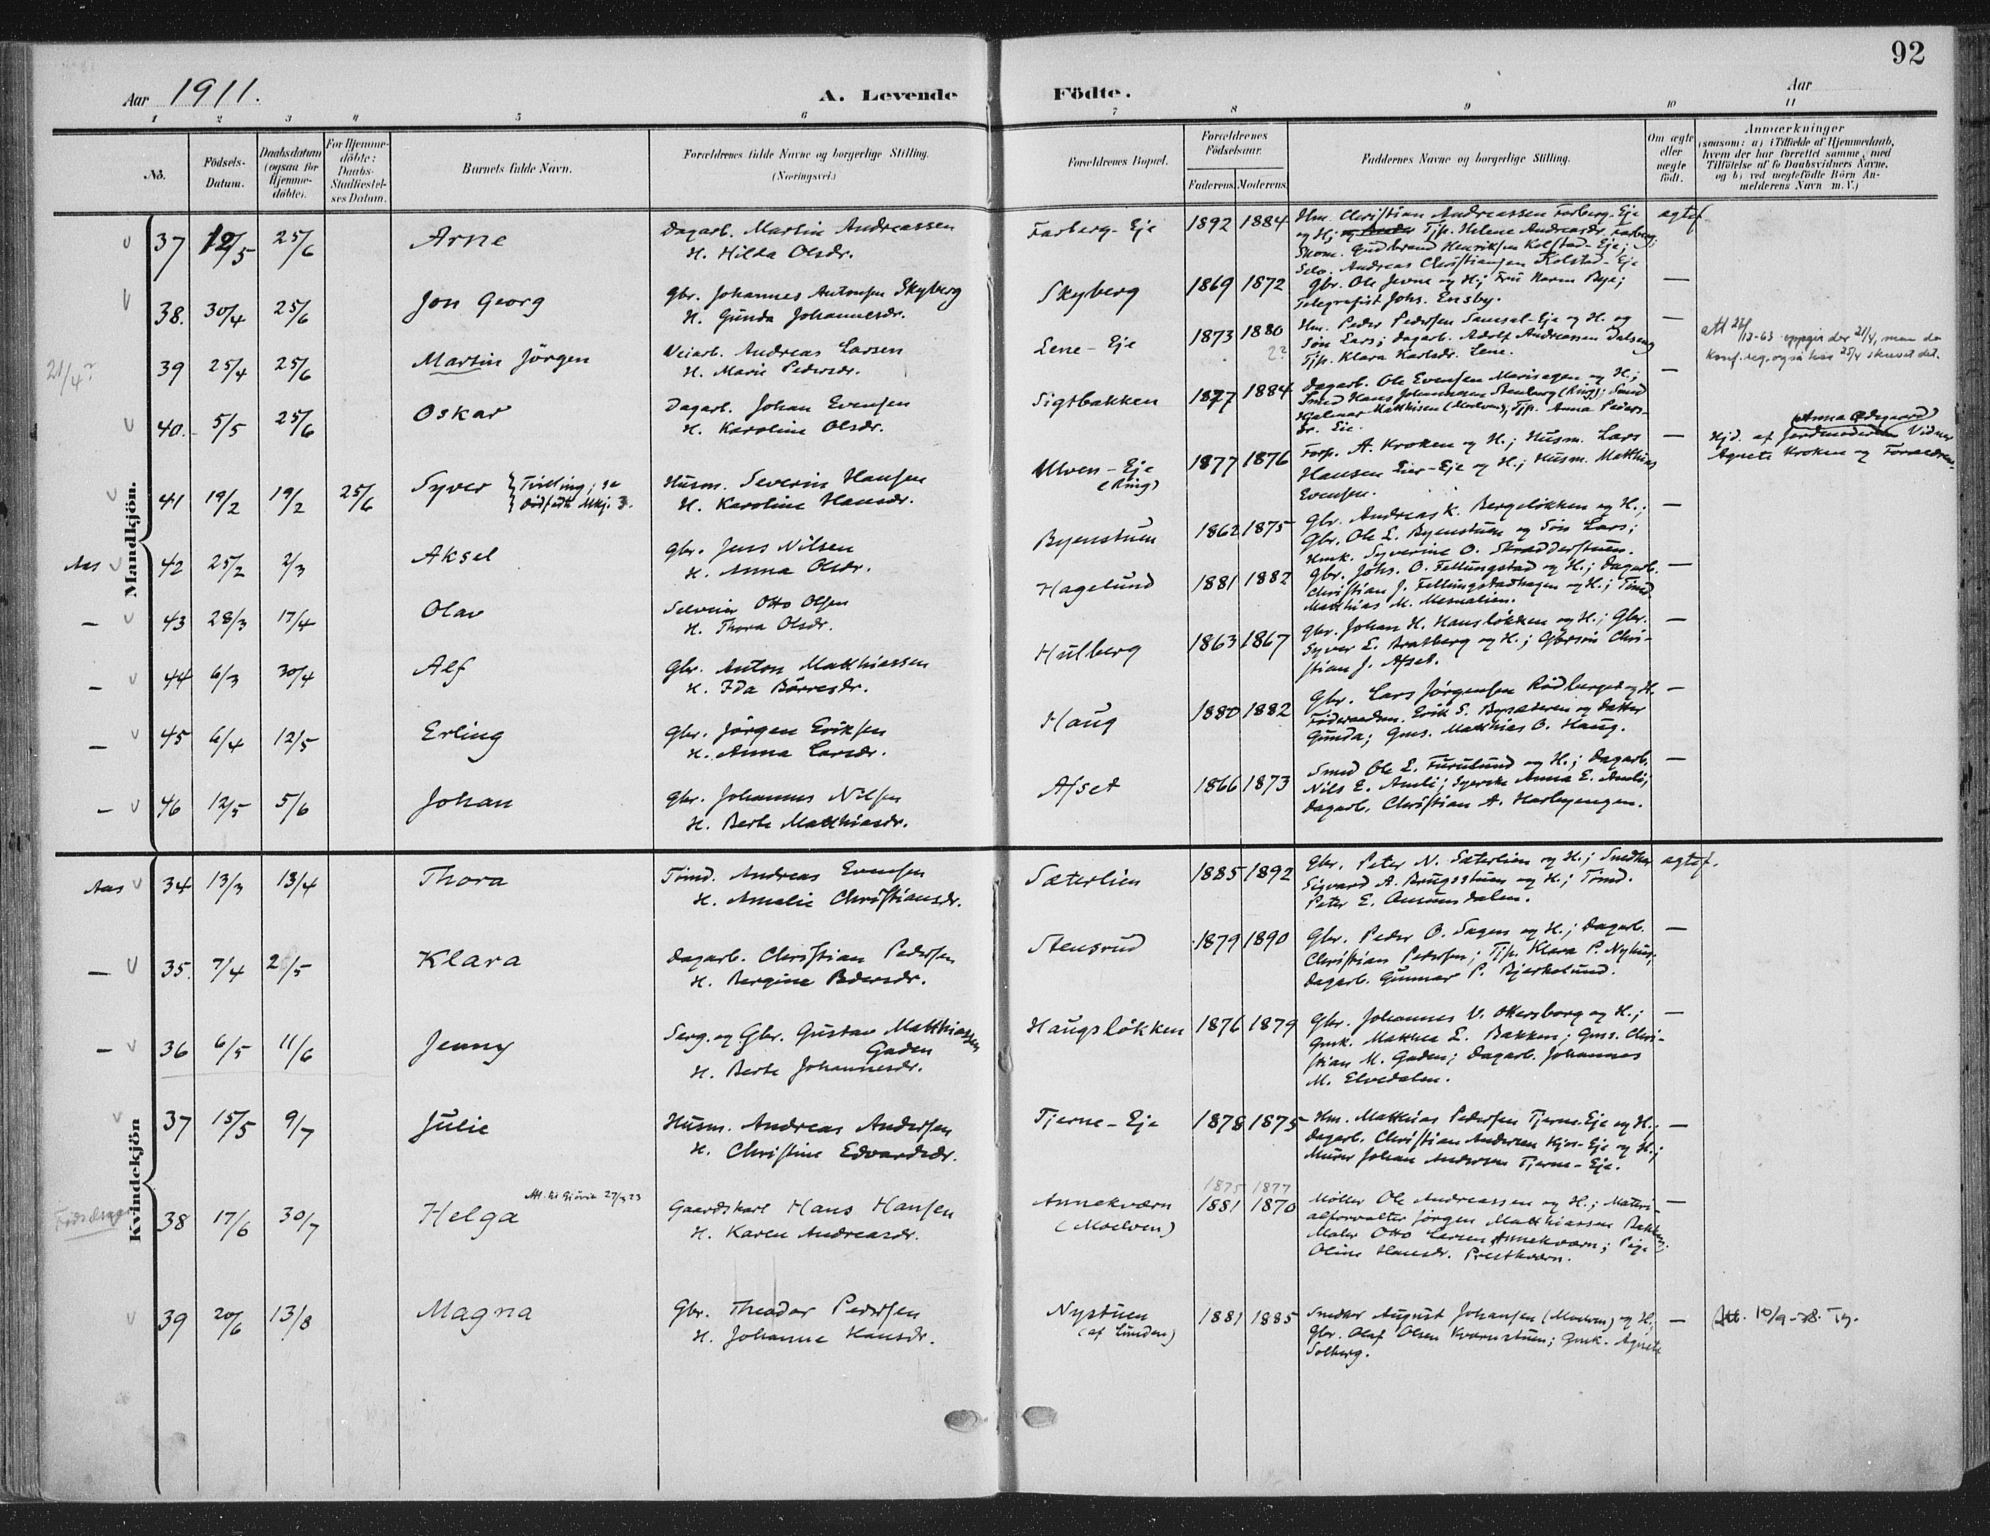 92
Aar 1911.
A. Levende Födte.
Aar
1 2 3 4 5 6 7 8 9 10 11
No.
Födsels-Datum.
Daabsdatum (ogsaa for Hjemme-döbte).
For Hjemme-döbte: Daabs-Stadfæstel-ses Datum.
Barnets fulde Navn.
Forældrenes fulde Navne og borgerlige Stilling. (Næringsvei.)
Forældrenes Bopæl.
Forældrenes Födselsaar.
Faderens. Moderens.
Faddernes Navne og borgerlige Stilling.
Om ægte eller uægte födt.
Anmærkninger
(saasom: a) i Tilfælde af Hjemmedaab, hvem der har forrettet samme, med Tilföielse af to Daabsvidners Navne, og b) ved uægtefödte Börn An-melderens Navn m. V.)
Mandkjön.
37 12/5 25/6 Arne
Dagarb. Martin Andreassen
H. Hilda Olsdr.
Farberg-Eje 1892 1884
Hm. Christian Andreassen Farberg-Eje
og H; Tjp. Helene Andreasdr. Farberg;
Skom. Gudbrand Henriksen Kolstad-Eje;
Selv. Andreas Christiansen Kolstad-Eje
ægtef.
38. 30/4 25/6 Jon Georg
Gbr. Johannes Antonsen Skyberg
H. Gunda Johannesdr.
Skyberg 1869 1872
Gbr. Ole Jevne og H; Fru Bye;
Telegrafist Johs. Ensby.
—
21/4?
39 25/4 25/6 Martin Jörgen
Veiarb. Andreas Larsen
H. Marie Pedersdr.
Lene-Eje 1873 1880
2?
Hm. Peder Pedersen Samsal-Eje og H. og
Søn Lars; Dagarb. Adolf Andreassen Dalseng
Tjp. Klara Karlsdr. Lene.
—
att 22/12-63 oppgir der 21/4, men da
konf.reg. også har 25/4 skrevet det.
40. 5/5 25/6 Oskar
Dagarb. Johan Evensen
H. Karoline Olsdr.
Sigtbakken 1877 1884
Dagarb. Ole Evensen Marishagen og H;
Smed Hans Johannesen Stenberg (Ring); Smed
Hjalmar Matthisen (Moelven); Tjp. Anna Peders-
dr. Lie.
—
41 19/2 19/2 25/6 Syver
Tvilling; se
Dødfødt Mkj. 3.
Husm. Severin Hansen
H. Karoline Hansdr.
Ulven-Eje
(Ring)
1877 1876
Forp. A. Kroken og H.; Husm. Lars
Hansen Eier-Eje og H.; Husm. Matthias
Evensen.
—
(Anna Ødegaard)
Hjd. af Jordmoderen Vidner
Agnete Kroken og Forældrene.
Aas
42 25/2 2/3 Aksel
Gbr. Jens Nilsen
H. Anna Olsdr.
Byenstuen 1862 1875
Gbr. Andreas K. Bergeløkken og H.;
Gbr. Ole L. Byenstuen og Søn Lars;
Gmk. Syverine O. Skrædderstuen.
—
—
43 28/3 17/4 Olav
Selveier Otto Olsen
H. Thora Olsdr.
Hagelund 1881 1882
Gbr. Johs. O. Fellungstad og H.; Dagarb.
Christian J. Fellungstadhagen og H.; Tömd.
Matthias M. Mesnalien.
—
—
44 6/3 30/4 Alf
Gbr. Anton Matthiassen
H. Ida Børresdr.
Hulberg 1863 1867
Gbr. Johan H. Hansløkken og H.; Gbr.
Syver L. Bratberg og H.; Gbrsøn Chri-
stian J. Afset.
—
—
45 6/4 12/5 Erling
Gbr. Jörgen Eriksen
H. Anna Larsdr.
Haug 1880 1882
Gbr. Lars Jörgensen Rödberget og H.
Föderaadsm. Erik S. Bysæteren og Datter
Gunda; Gms. Matthias O. Haug.
—
—
46 12/5 5/6 Johan
Gbr. Johannes Nilsen
H. Berte Matthiasdr.
Afset 1866 1873
Smed Ole L. Furulund og H.; Dagarb.
Nils E. Amli; Syerske Anna E. Amli;
Dagarb. Christian A. Harbyengen.
—
Kvindekjön
Aas
34 13/3 13/4 Thora
Tömd. Andreas Evensen
H. Amalie Christiansdr.
Sæterlien 1885 1892
Gbr. Peter N. Sæterlien og H.; Snedker
Sigvard A. Brugsstuen og H.; Tömd.
Peter E. Amundsdalen.
ægtef.
—
35. 7/4 2/5 Klara
Dagarb. Christian Pedersen
H. Bergine Pedersdr.
Stensrud 1879 1890
Gbr. Peder O. Sagen og H.; Dagarb.
Christian Pedersen; Tjp. Klara P. Nyhus;
Dagarb. Gunnar P. Bjerkelund.
—
—
36 6/5 11/6 Jenny
Serg. og Gbr. Gustav Matthiassen
Gaden
H. Berte Johannesdr.
Haugsløkken 1876 1879
Gbr. Johannes U. Okersborg og H.;
Gmk. Matthea L. Bakken; Gms. Chri-
stian M. Gaden; Dagarb. Johannes
M. Elvedalen.
—
37 15/5 9/7 Julie
Husm. Andreas Andersen
H. Christine Edvardsdr.
Tjerne-Eje 1878 1875
Hm. Matthias Pedersen Tjerne-Eje og H.;
Dagarb. Christian Andersen Kjos-Eje og H.;
Murer Johan Andersen Tjerne-Eje.
—
Att. til Gjövik 27/3 23
38 17/6 30/7 Helga
Gaardskarl Hans Hansen
H. Karen Andreasdr.
Annekværn
(Moelven)
1875 1877
1881 1870
Møller Ole Andreassen og H.; Materi-
alforvalter Jörgen Matthiassen Bakken;
Maler Otto Larsen Annekværn; Pige
Oline Hansdr. Prestkværn.
—
39 20/6 13/8 Magna
Gbr. Theodor Pedersen
H. Johanne Hansdr.
Nystuen
(af Lunden)
1881 1885
Snedker August Johansen (Moelven) og H;
Gbr. Olaf Olsen Kværnstuen; Gmk. Agnete
Solberg.
—
Att. 10/9-38.